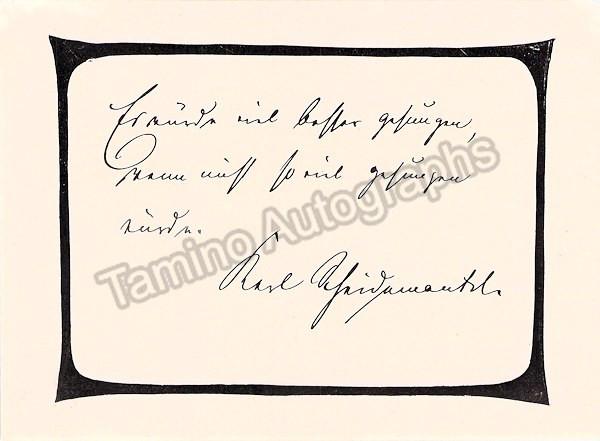 Es würde viel besser gesungen,
wenn nicht so viel gesungen
würde.
Karl Scheidemantel.
Tamino Autographs